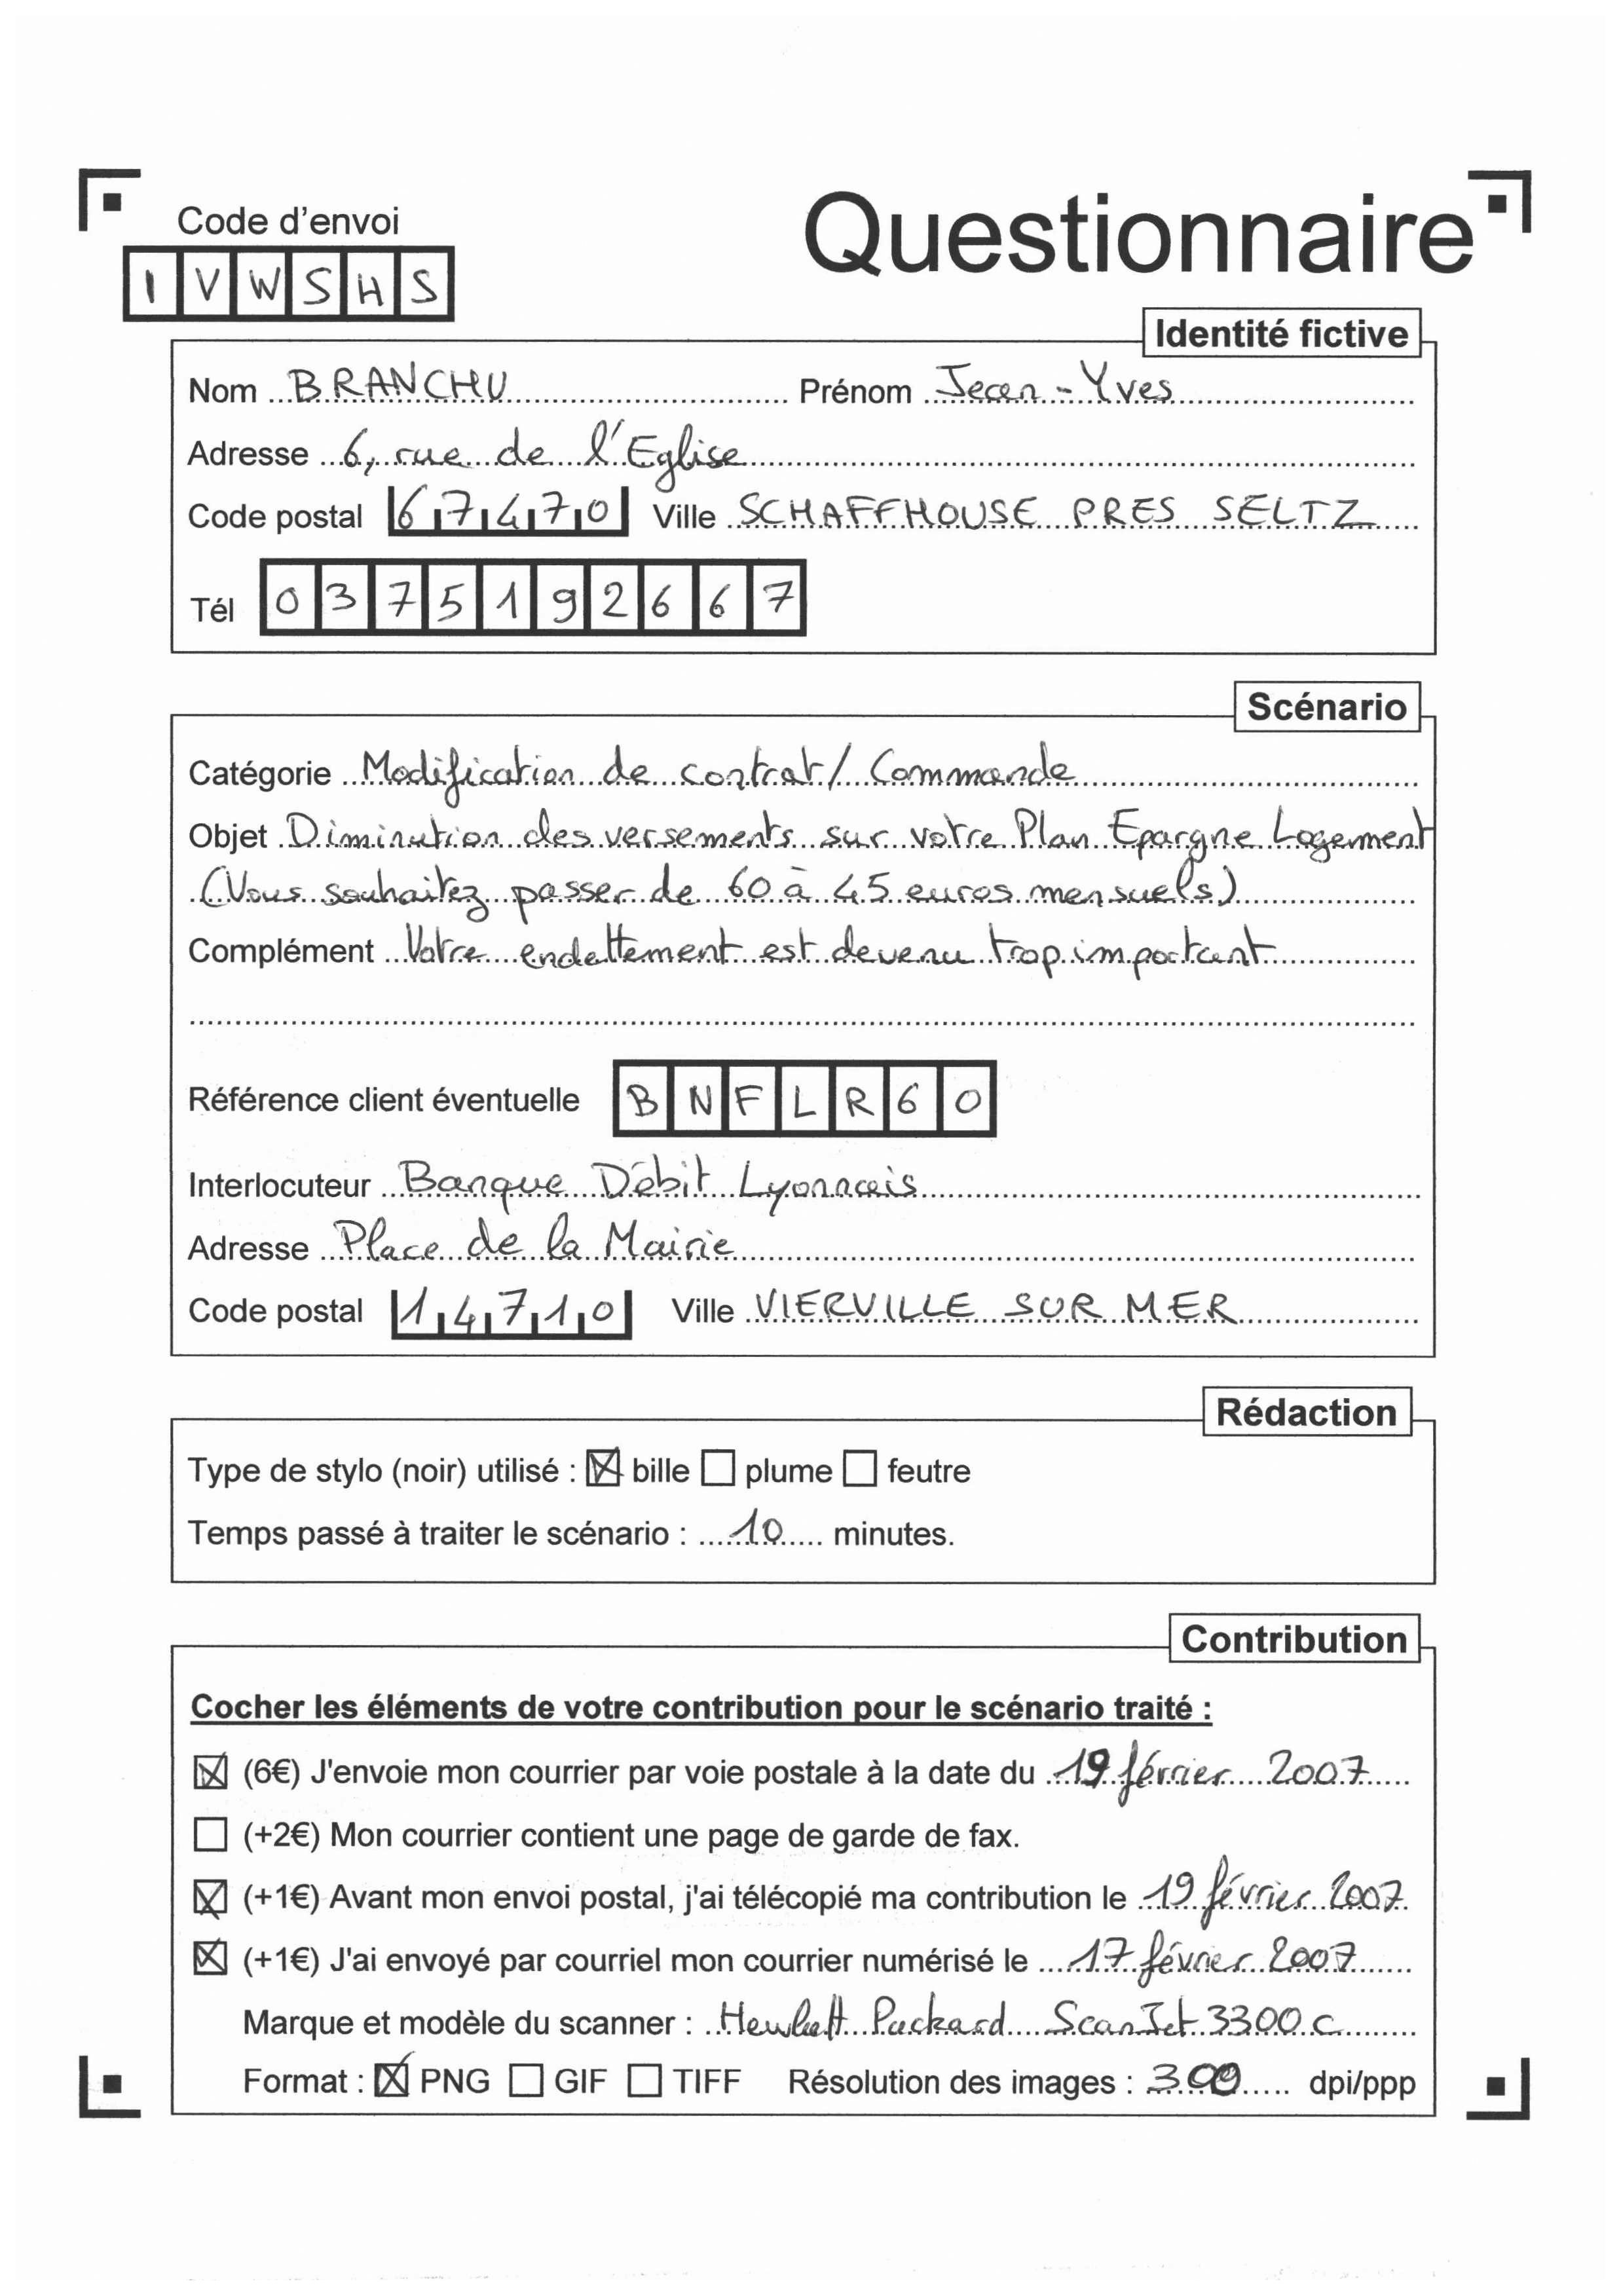 Code d'envoi
Questionnaire
I V W S H S
Identité fictive
Nom BRANCHU Prénom Jean-Yves
Adresse 6, rue de l'Eglise
Code postal 67470 Ville SCHAFFHOUSE PRES SELTZ
Tél 0375192667
Scénario
Catégorie Modification de contrat/Commande
Objet Diminution des versements sur votre Plan Epargne Logement
(Vous souhaitez passer de 60 à 45 euros mensuels)
Complément Votre endettement est devenu trop important
Référence client éventuelle B N F L R 6 0
Interlocuteur Banque Débit Lyonnais
Adresse Place de la Mairie
Code postal 14710 Ville VIERVILLE SUR MER
Rédaction
Type de stylo (noir) utilisé : ☒ bille ☐ plume ☐ feutre
Temps passé à traiter le scénario : 10 minutes.
Contribution
Cocher les éléments de votre contribution pour le scénario traité :
☒ (6€) J'envoie mon courrier par voie postale à la date du 19 février 2007
☐ (+2€) Mon courrier contient une page de garde de fax.
☒ (+1€) Avant mon envoi postal, j'ai télécopié ma contribution le 19 février 2007
☒ (+1€) J'ai envoyé par courriel mon courrier numérisé le 17 février 2007
Marque et modèle du scanner : Hewlett Packard ScanJet 3300c
Format : ☒ PNG ☐ GIF ☐ TIFF Résolution des images : 300 dpi/ppp